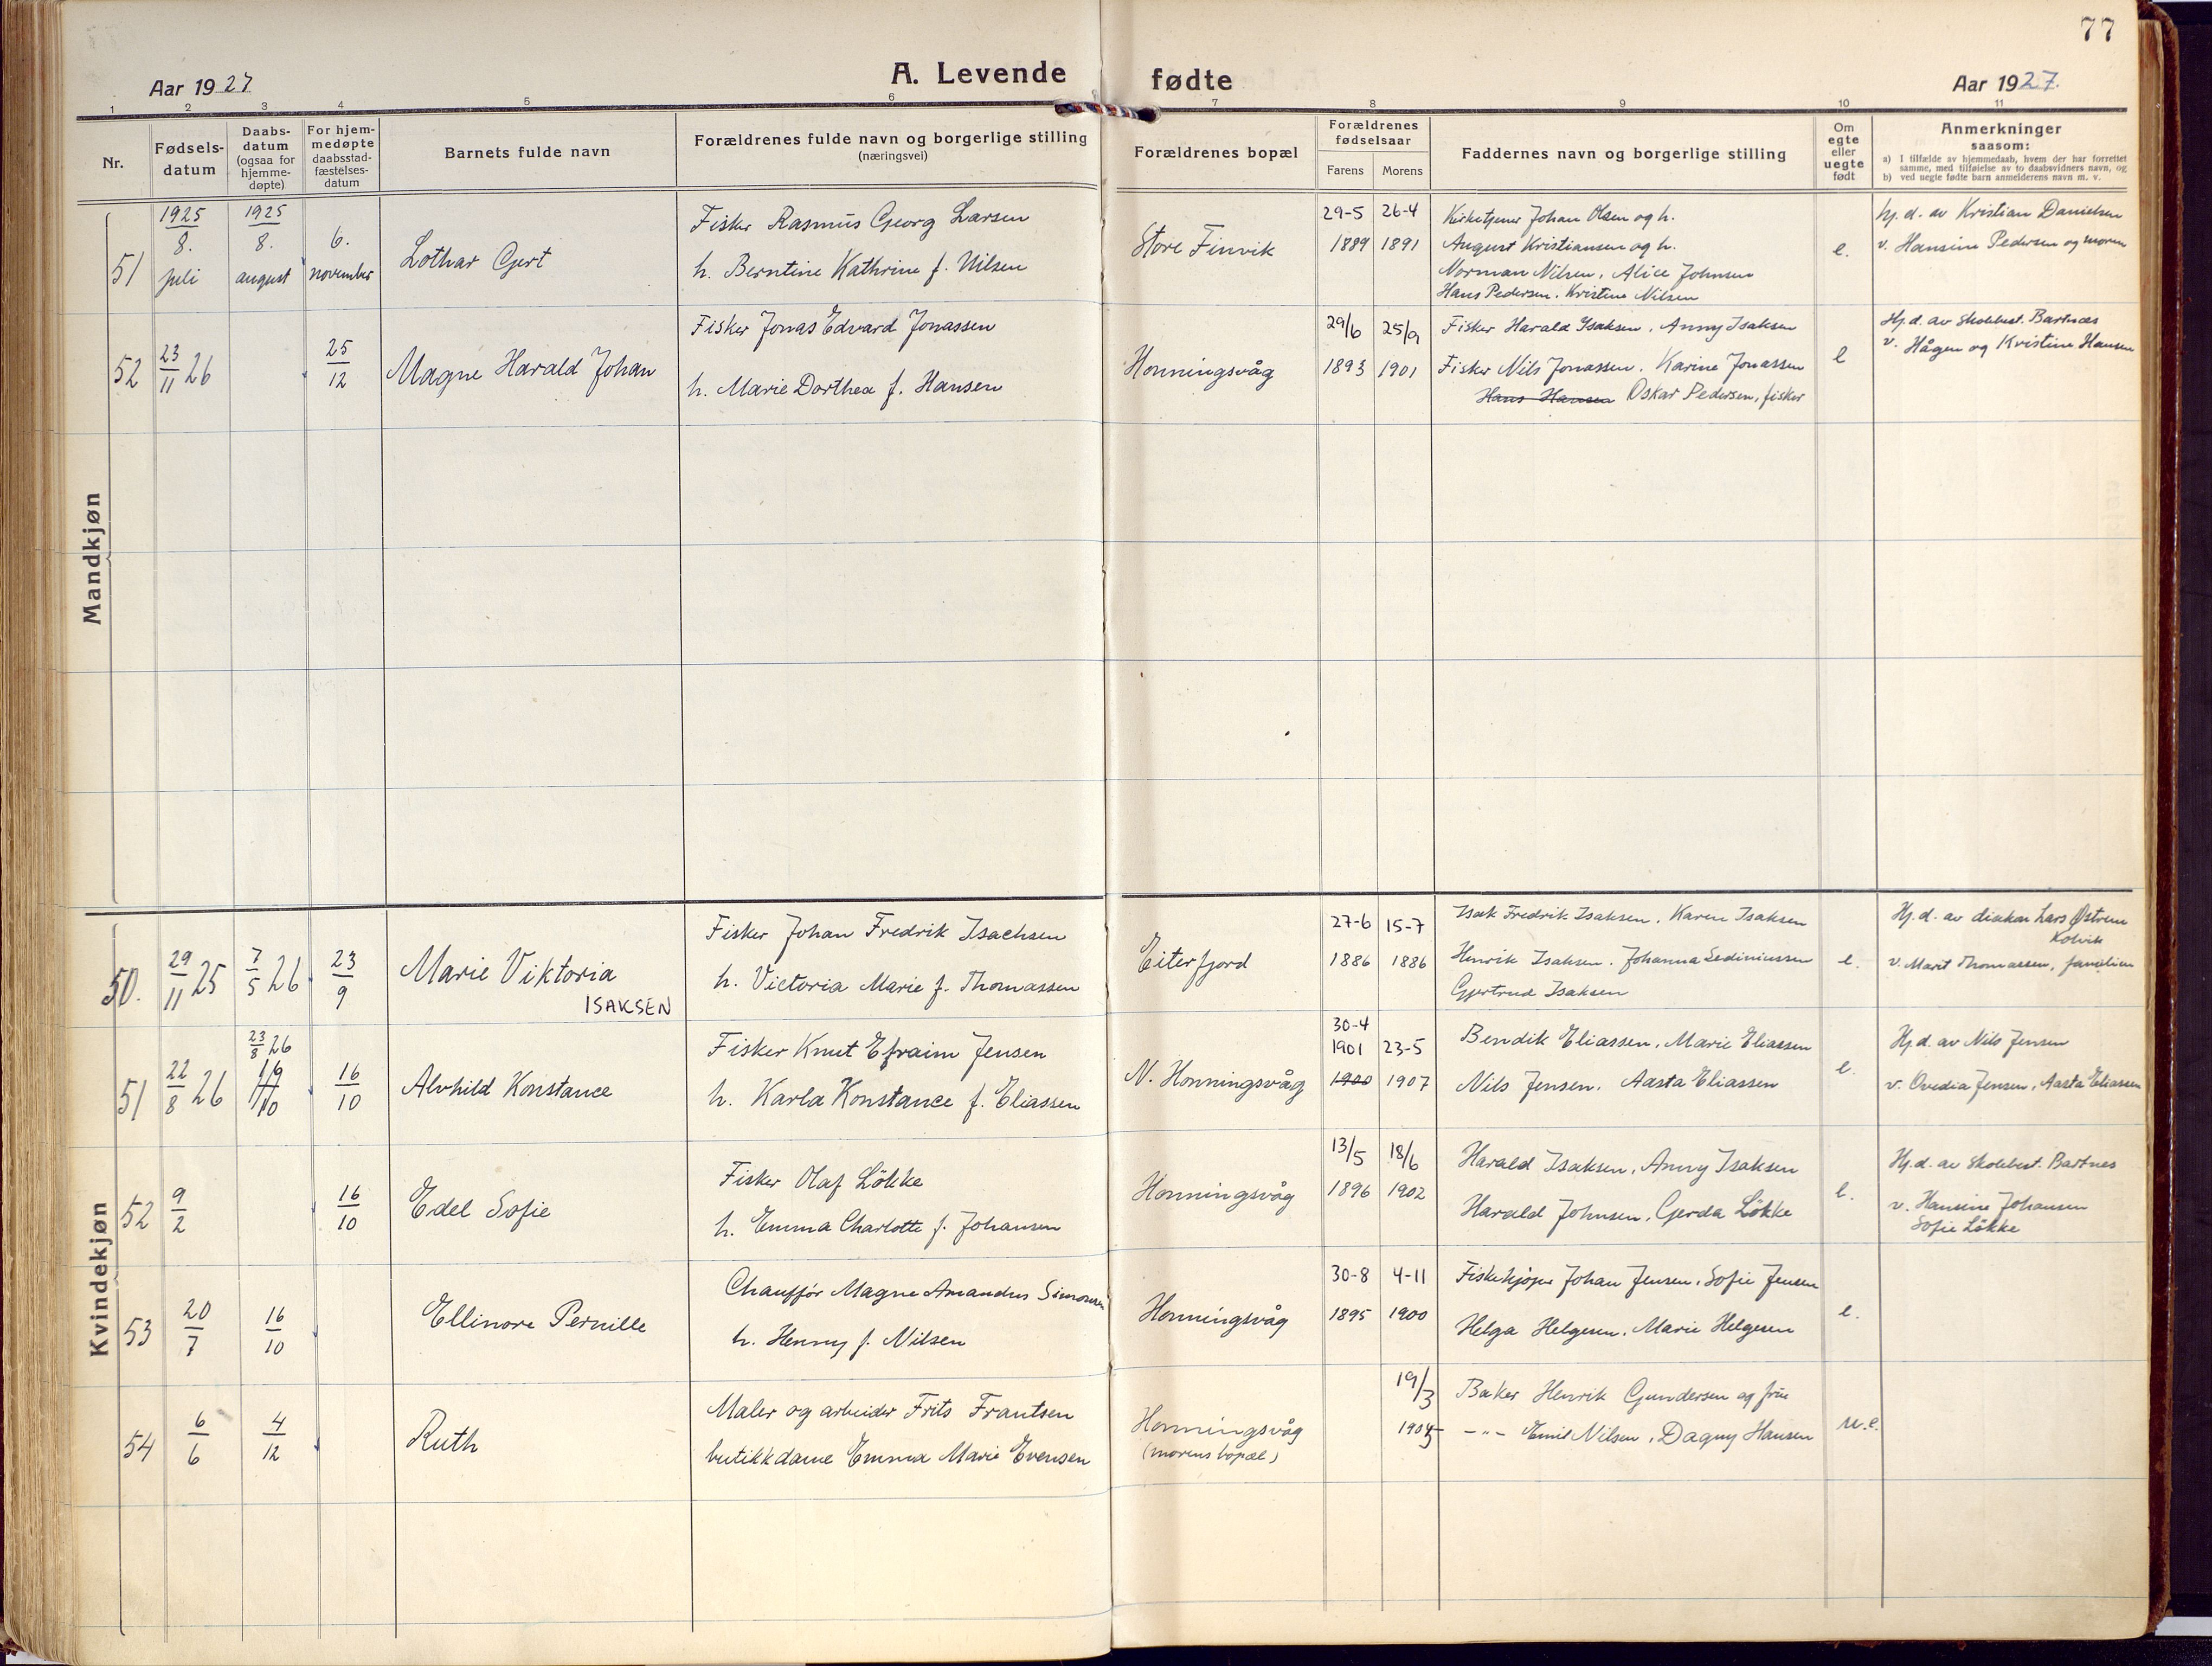 77
Aar 1927
A. Levende fødte
Aar 1927.
1 2 3 4 5 6 7 8 9 10 11
Nr.
Fødsels-
datum
Daabs-
datum
(ogsaa for
hjemme-
døpte)
For hjem-
medøpte
daabsstad-
fæstelses-
datum
Barnets fulde navn
Forældrenes fulde navn og borgerlige stilling
(næringsvei)
Forældrenes bopæl
Forældrenes
fødselsaar
Farens Morens
Faddernes navn og borgerlige stilling
Om
egte
eller
uegte
født
Anmerkninger
saasom:
a) I tilfælde av hjemmedaab, hvem der har forrettet
samme, med tilføielse av to daabsvidners navn, og
b) ved uegte fødte barn anmelderens navn m. v.
Mandkjøn
51
1925
8.
juli
1925
8.
august
6.
november
Lothar Gjert
Fisker Rasmus Georg Larsen
h. Berntine Kathrine f. Nilsen
Store Finvik
29-5 26-4
1889 1891
Kirketjener Johan Olsen og h.
August Kristiansen og h.
Norman Nilsen, Alice Johnsen
Hans Pedersen. Kristine Nilsen
e.
hj. d. av Kristian Danielsen
v. Hansine Pedersen og moren
52
23/11 26
25/12
Magne Harald Johan
Fisker Jonas Edvard Jonassen
h. Marie Dorthea f. Hansen
Honningsvåg
29/6 25/9
1893 1901
Fisker Harald Isaksen, Anny Isaksen
Fisker Nils Jonassen. Karine Jonassen
Hans Hansen Oskar Pedersen, fisker
e
Hj. d. av Skolebest. Bartnes
v. Hågen og Kristine Hansen
Kvindekjøn
50.
29/11 25
7/5 26
23/9
Marie Viktoria
ISAKSEN
Fisker Johan Fredrik Isachsen
h. Victoria Marie f. Thomassen
Eiterfjord
27-6 15-7
1886 1886
Isak Fredrik Isaksen. Karen Isaksen
Henrik Isaksen. Johanna Lediniussen
Gjertrud Isaksen
e.
Hj. d. av diakon Lars Østrem
Kolvik
v. Marit Thomassen, familien
51
22/8 26
23/8 26
16/10
16/10
Alvhild Konstance
Fisker Knut Efraim Jensen
h. Karla Konstance f. Eliassen
N. Honningsvåg
30-4
1901 23-5
1900 1907
Bendik Eliassen, Marie Eliassen
Nils Jensen. Aasta Eliassen
e.
Hj. d. av Nils Jensen
v. Ovedia Jensen, Aasta Eliassen
52
9/2
16/10
Edel Sofie
Fisker Olaf Lökke
h. Emma Charlotte f. Johansen
Honningsvåg
13/5 18/6
1896 1902
Harald Isaksen, Anny Isaksen
Harald Johnsen, Gerda Lökke
e.
Hj. d. av Skolebest. Bartnes
v. Hansine Johansen
Sofie Lökke
53
20/7
16/10
Ellinore Pernille
Chaufför Magne Amandus Simonsen
h. Henny f. Nilsen
Honningsvåg
30-8 4-11
1895 1900
Fiskekjöper Johan Jensen, Sofie Jensen
Helga Helgesen, Marie Helgesen
e.
54
6/6
4/12
Ruth
Maler og arbeider Frits Frantsen
butikkdame Emma Marie Evensen
Honningsvåg
(morens bopæl)
19/3
1905
Baker Henrik Gundersen og frue
-"- Emil Nilsen, Dagny Hansen
u.e.